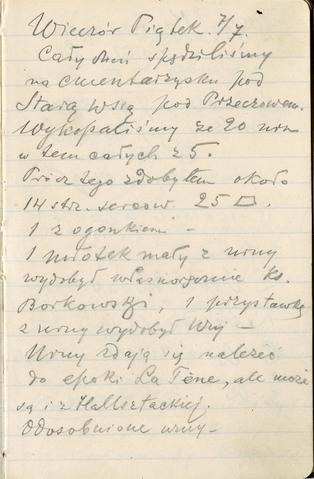 Wieczór Piątek 7/7.
Cały dzień spędziliśmy
na cmentarzysku pod
Starą wsią pod Przeczowem.
Wykopaliśmy ze 20 urn
w tem całych z 5.
Prócz tego zdobyłem około
14 str. 25 □.
1 z ogonkiem —
1 młotek mały z urny
wydobył własnoręcznie ks.
Borkowski, 1 przystawkę
z urny wydobył Wuj —
Urny zdają się należeć
do epoki La Tène, ale może
są i z Hallsztackiej.
Odosobnione urny —